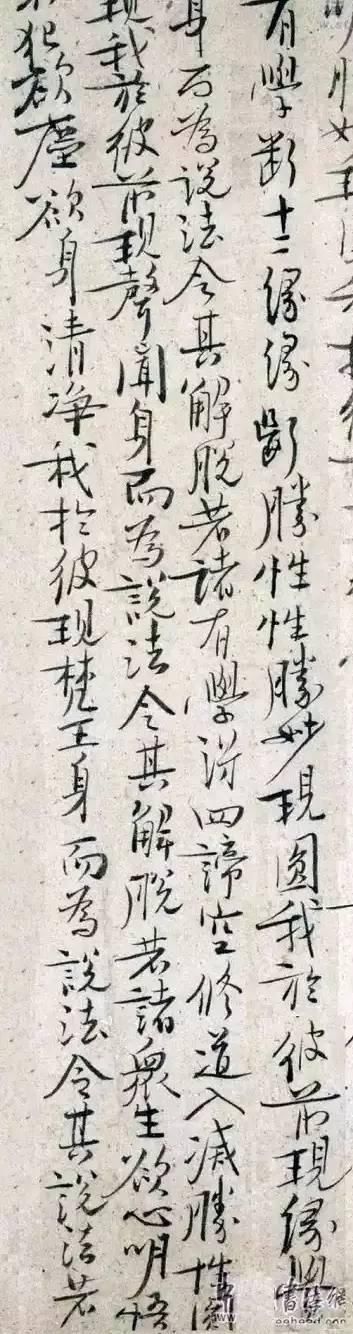 勝妙現
有學斷十二緣緣斷勝性性勝妙現圓我於彼前現緣覺
身而為說法令其解脫若諸有學得四諦空修道入滅勝性
現我於彼前現聲聞身而為說法令其解脫若諸眾生欲心明悟
犯欲塵欲身清淨我於彼現梵王身而為說法令其說法若